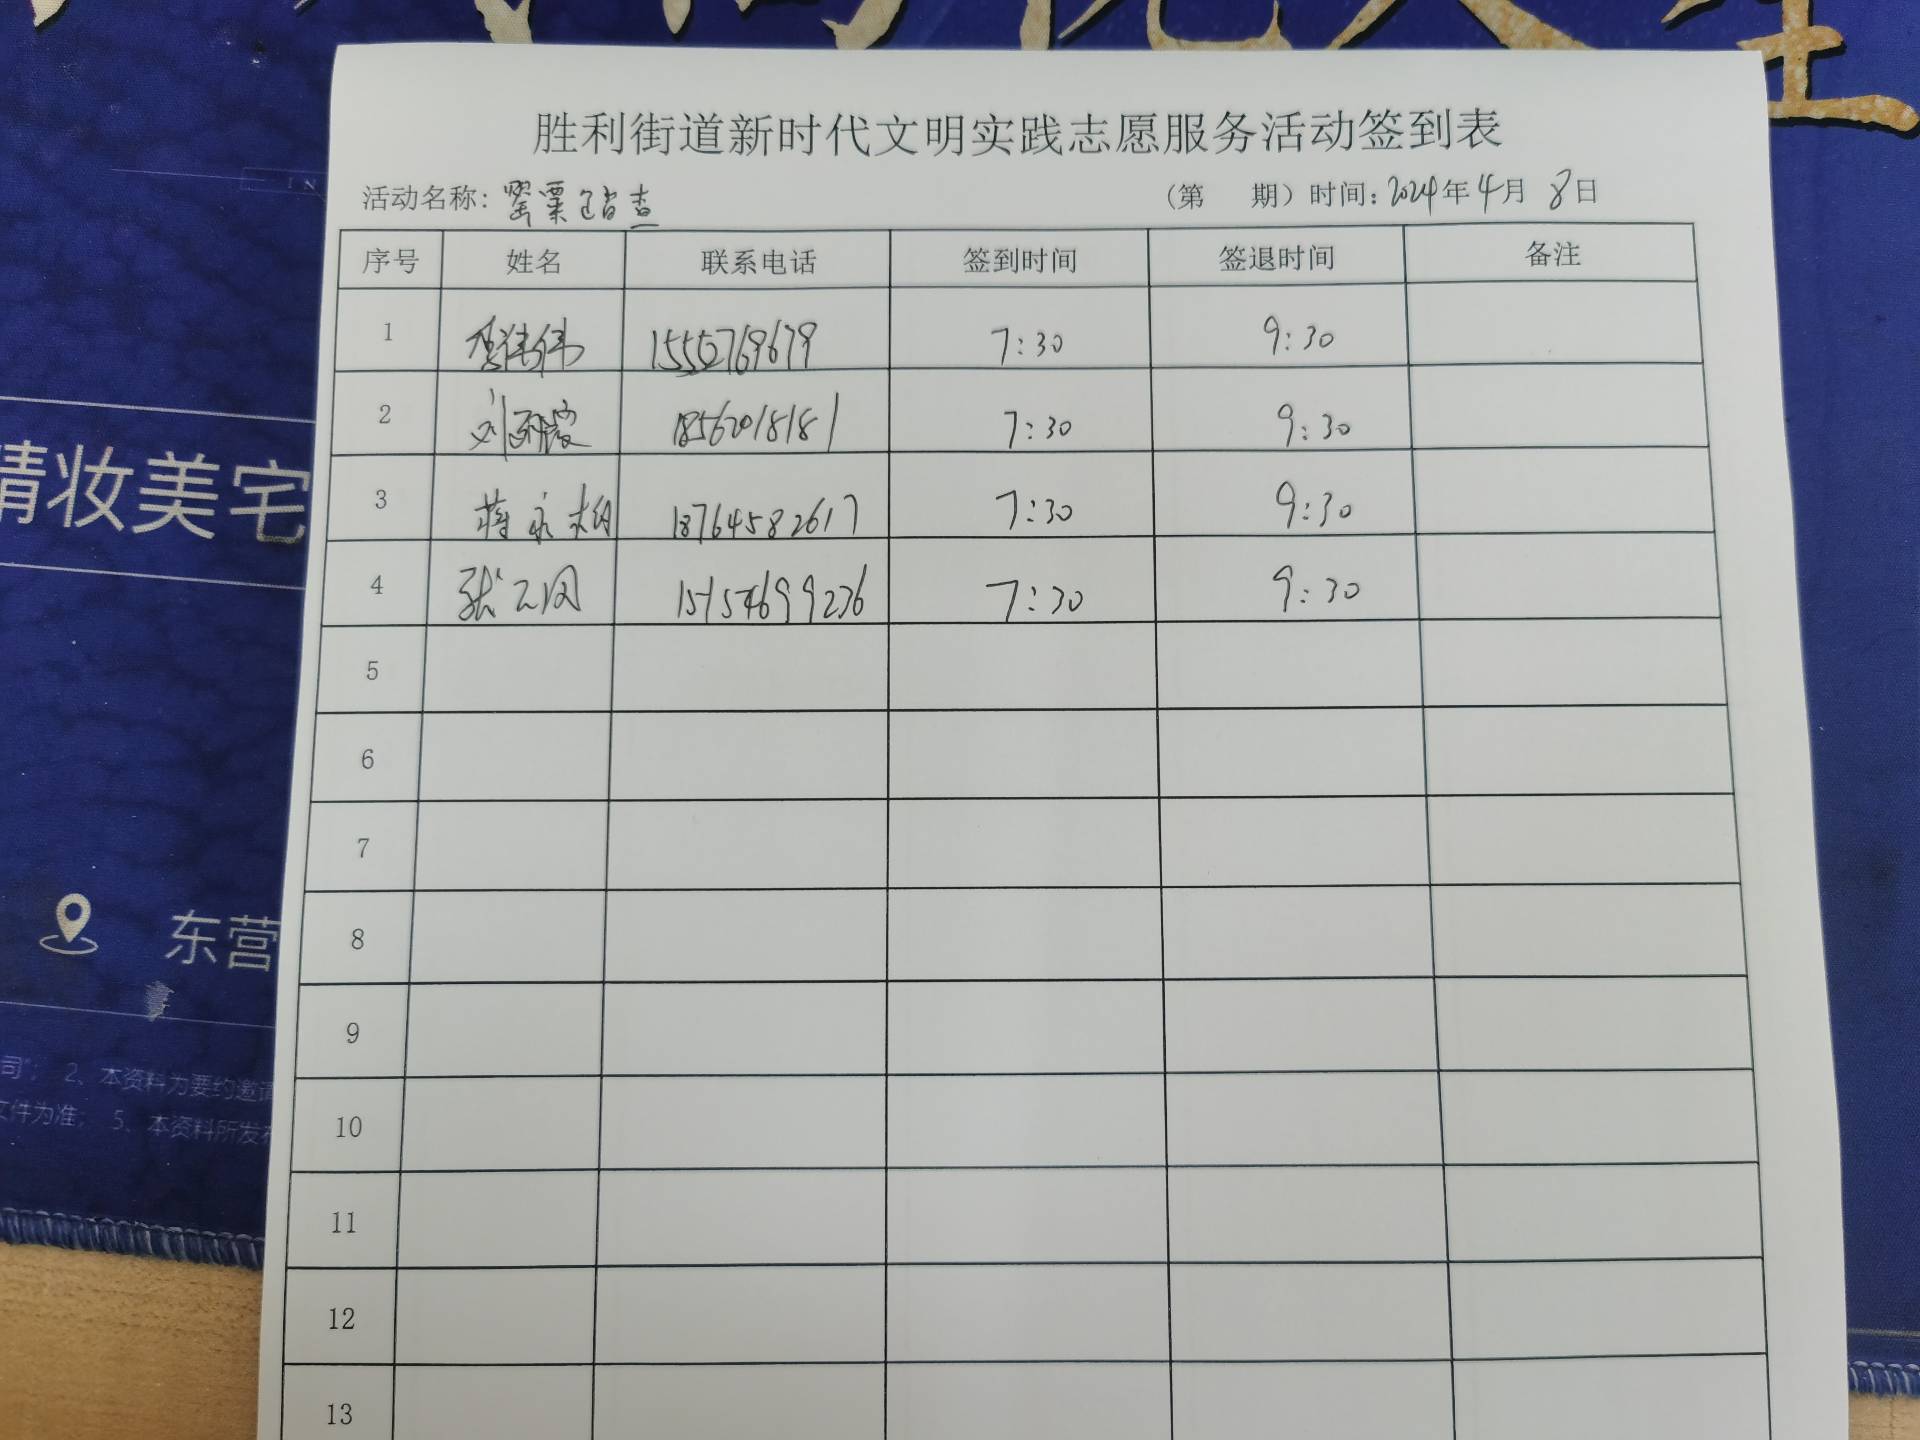 精妆美宅
东营
司"; 2、本资料为要约邀请
文件为准; 5、本资料所发布
胜利街道新时代文明实践志愿服务活动签到表
活动名称: 罂粟踏查 (第 期) 时间: 2024年4月8日
序号 姓名 联系电话 签到时间 签退时间 备注
1 李伟伟 15552769679 7:30 9:30
2 刘丽霞 18562018181 7:30 9:30
3 蒋永 18764582617 7:30 9:30
4 张云凤 15154699236 7:30 9:30
5
6
7
8
9
10
11
12
13